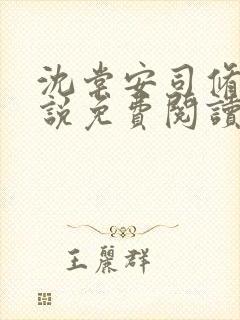 沈棠安司脩
說免費閱讀
王麗群